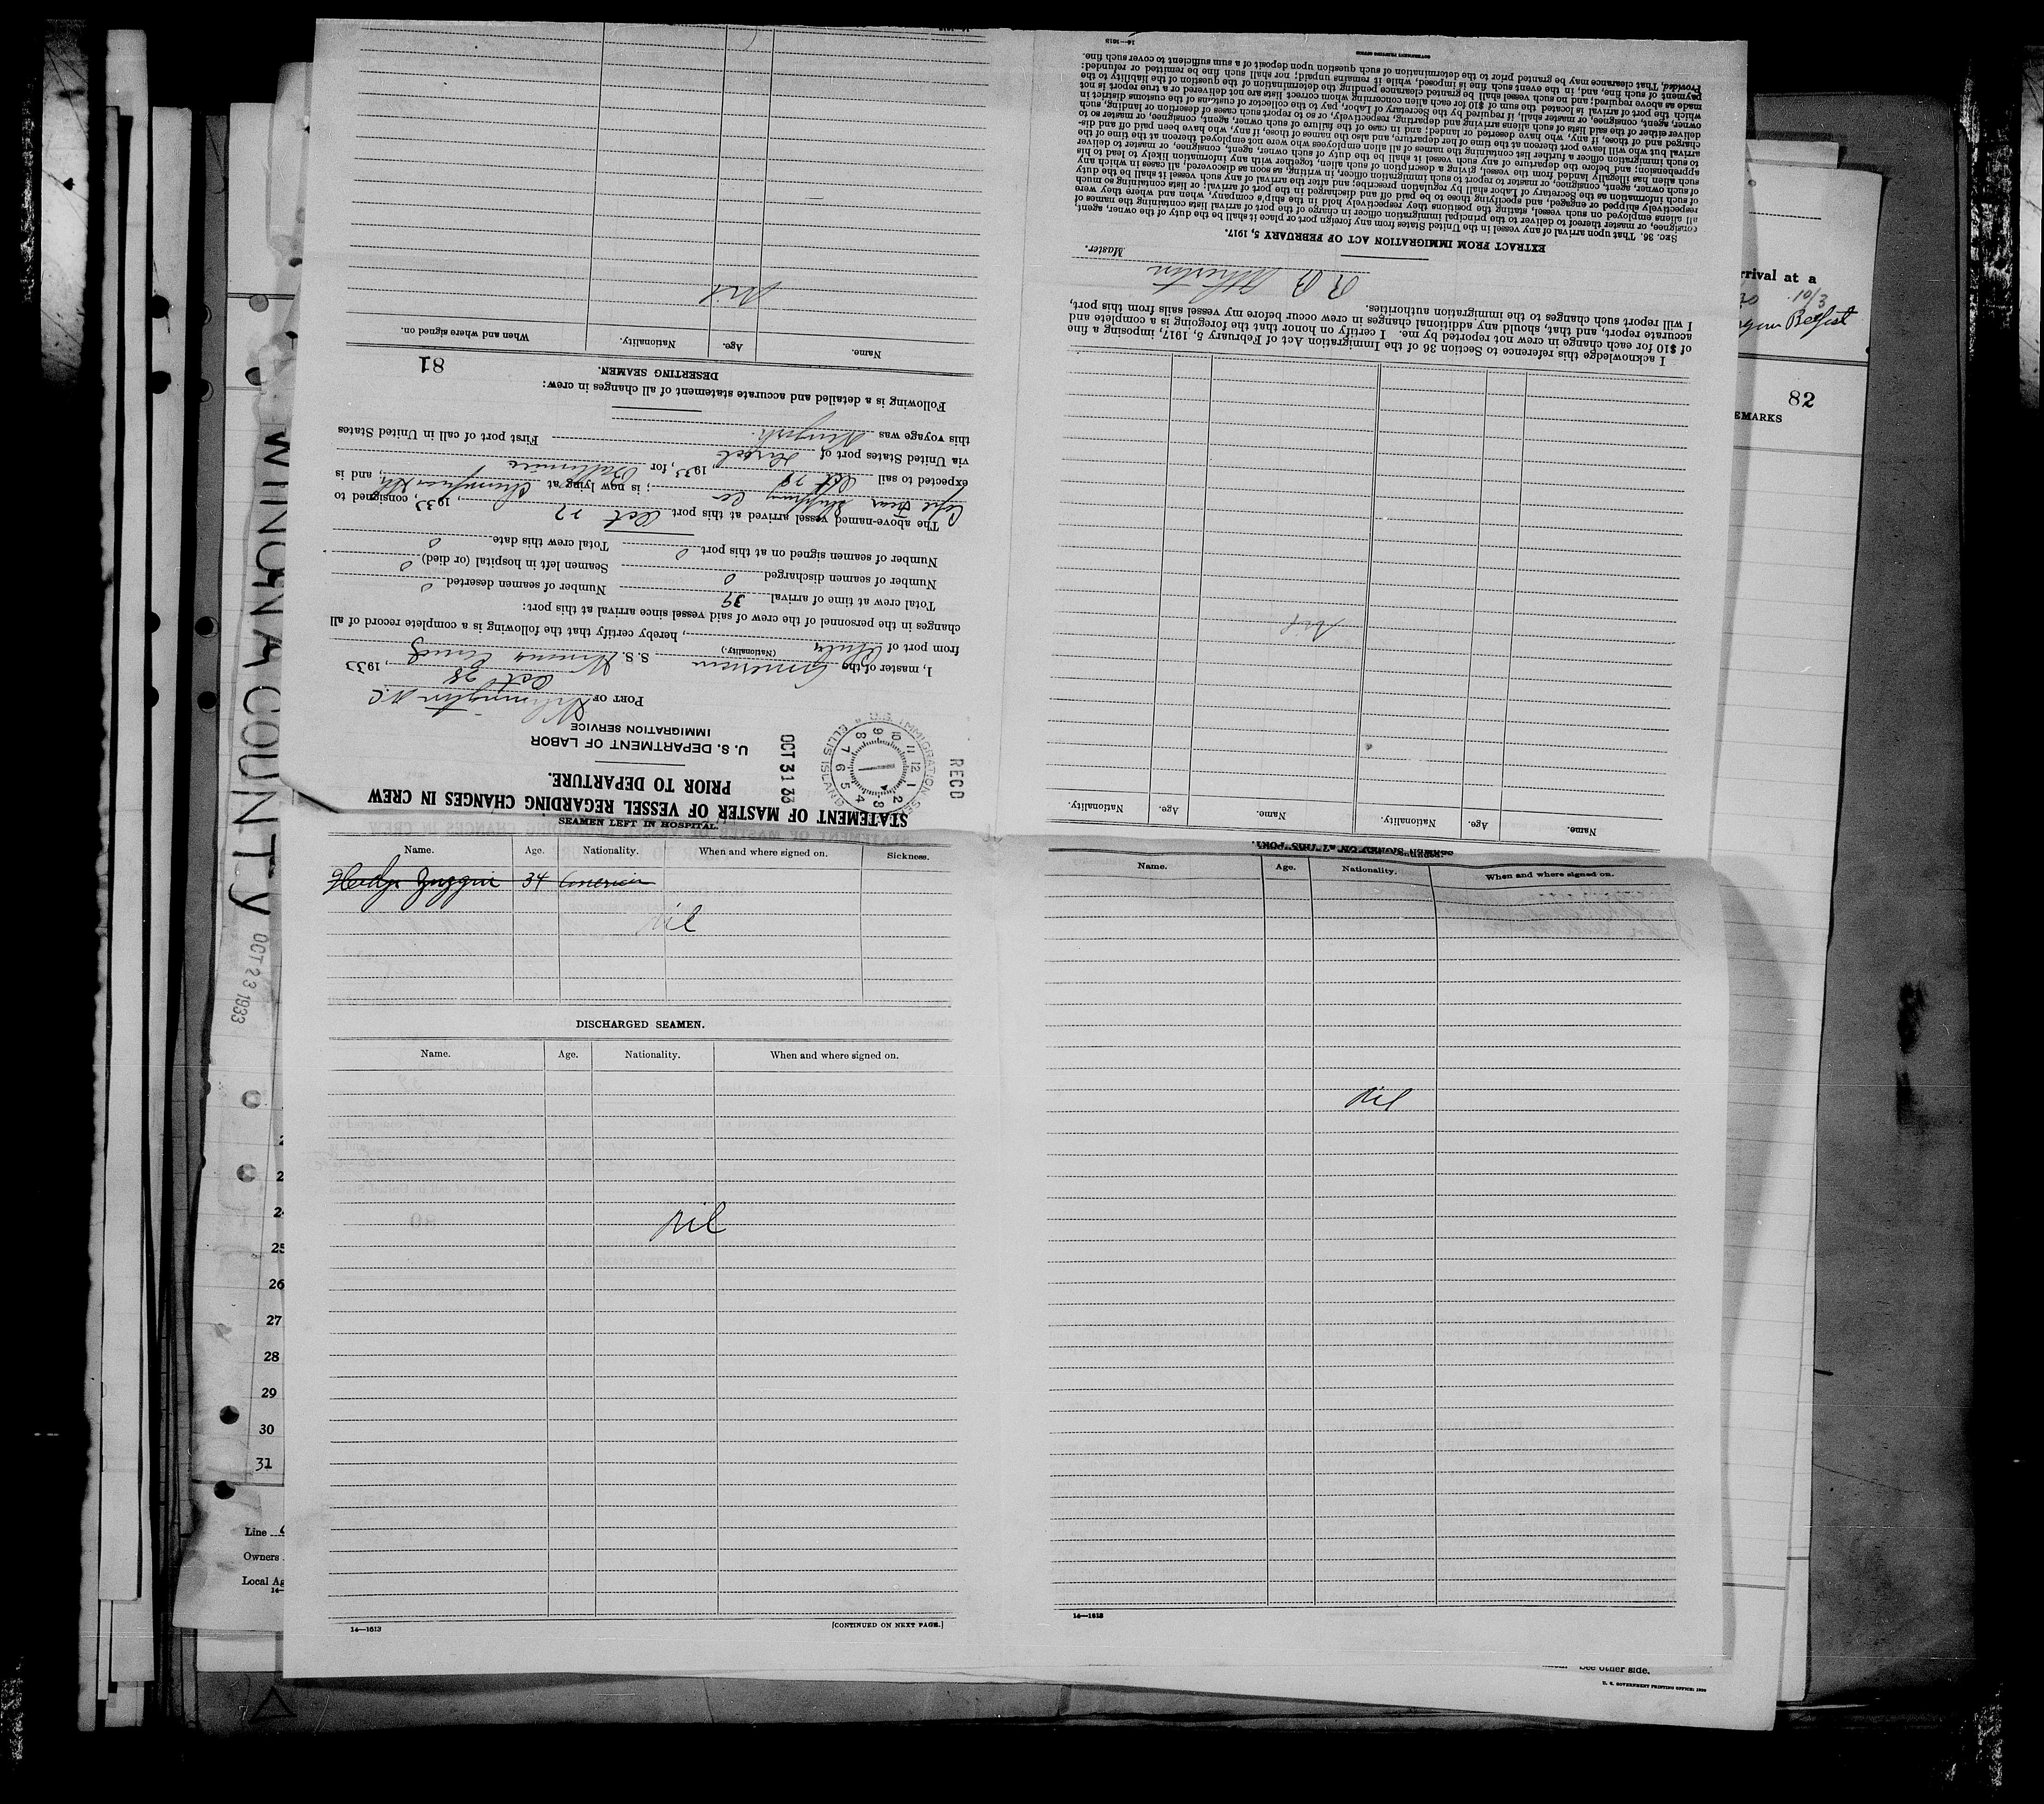 STATEMENT OF MASTER OF VESSEL REGARDING CHANGES IN CREW
PRIOR TO DEPARTURE.
U. S. DEPARTMENT OF LABOR
IMMIGRATION SERVICE
RECD
U.S. IMMIGRATION
ELLIS ISLAND
OCT 31 33
PORT OF Wilmington N.C
Oct 28, 1933
I, master of the American S. S.
(Nationality.)
from port of, hereby certify that the following is a complete record of all
changes in the personnel of the crew of said vessel since arrival at this port:
Total crew at time of arrival 39 Number of seamen deserted 0
Number of seamen discharged 0 Seamen left in hospital (or died) 0
Number of seamen signed on at this port 0 Total crew this date 0
The above-named vessel arrived at this port Oct 27, 1933, consigned to
Cape Fear Shipping Co; is now lying at, and is
expected to sail Oct 28 1933, for Baltimore
via United States port of direct First port of call in United States
this voyage was
Following is a detailed and accurate statement of all changes in crew:
DESERTING SEAMEN.
81
Name. Age. Nationality. When and where signed on.
Nil
14—1613
SEAMEN LEFT IN HOSPITAL.
Name. Age. Nationality. When and where signed on. Sickness.
34 American
Nil
DISCHARGED SEAMEN.
Name. Age. Nationality. When and where signed on.
Nil
14—1613
[CONTINUED ON NEXT PAGE.]
Name. Age. Nationality. When and where signed on.
Nil
14—1613
SEAMEN SIGNED ON AT THIS PORT.
Name. Age. Nationality. Name. Age. Nationality.
Nil
I acknowledge this reference to Section 36 of the Immigration Act of February 5, 1917, imposing a fine
of $10 for each change in crew not reported by me. I certify on honor that the foregoing is a complete and
accurate report, and that, should any additional changes in crew occur before my vessel sails from this port,
I will report such changes to the immigration authorities.
Master.
EXTRACT FROM IMMIGRATION ACT OF FEBRUARY 5, 1917.
SEC. 36. That upon arrival of any vessel in the United States from any foreign port or place it shall be the duty of the owner, agent,
consignee, or master thereof to deliver to the principal immigration officer in charge of the port of arrival lists containing the names of
all aliens employed on such vessel, stating the positions they respectively hold in the ship's company, when and where they were
respectively shipped or engaged, and specifying those to be paid off and discharged in the port of arrival; or lists containing so much
of such information as the Secretary of Labor shall by regulation prescribe; and after the arrival of any such vessel it shall be the duty
of such owner, agent, consignee, or master to report to such immigration officer, in writing, as soon as discovered, all cases in which any
such alien has illegally landed from the vessel, giving a description of such alien, together with any information likely to lead to his
apprehension; and before the departure of any such vessel it shall be the duty of such owner, agent, consignee, or master to deliver
to such immigration officer a further list containing the names of all alien employees who were not employed thereon at the time of the
arrival but who will leave port thereon at the time of her departure, and also the names of those, if any, who have been paid off and dis-
charged and of those, if any, who have deserted or landed; and in case of the failure of such owner, agent, consignee, or master so to
deliver either of the said lists of such aliens arriving and departing, respectively, or so to report such cases of desertion or landing, such
owner, agent, consignee, or master, shall, if required by the Secretary of Labor, pay to the collector of customs of the customs district in
which the port of arrival is located the sum of $10 for each alien concerning whom correct lists are not delivered or a true report is not
made as above required; and no such vessel shall be granted clearance pending the determination of the question of the liability to the
payment of such fine, and, in the event such fine is imposed, while it remains unpaid; nor shall such fine be remitted or refunded:
Provided, That clearance may be granted prior to the determination of such question upon deposit of a sum sufficient to cover such fine.
GOVERNMENT PRINTING OFFICE
14—1613
WINONA COUNTY
OCT 23 1933
25
26
27
28
29
30
31
Line
Owners
Local Ag
rrival at a
10/3
Belfast
82
EMARKS
See other side.
U. S. GOVERNMENT PRINTING OFFICE: